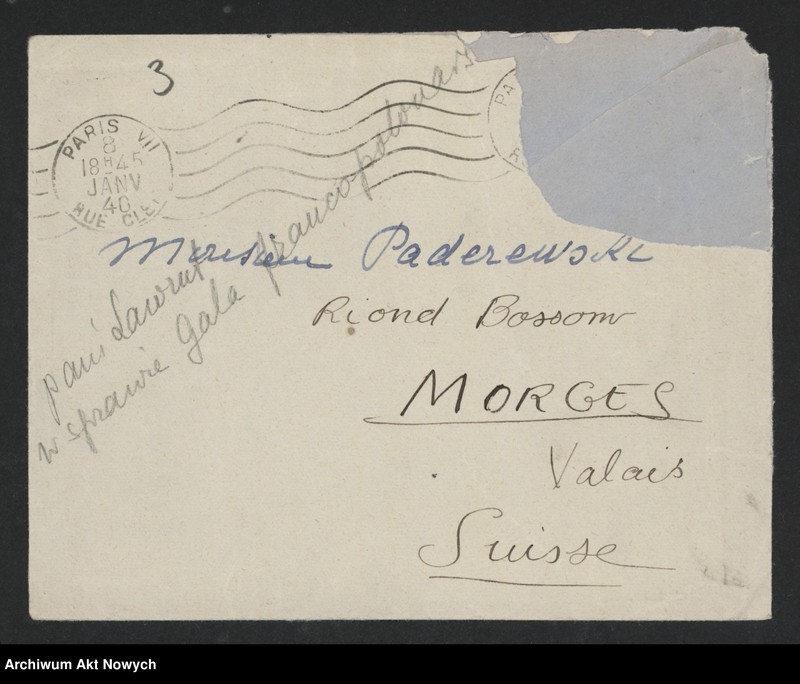 3
PARIS VII
8
18H45
JANV
40
RUE CLE
PA
R
Monsieur Paderewski
Riond Bossom
MORGES
Valais
Suisse
pani Laurent
w sprawie Gala franco polonais
Archiwum Akt Nowych